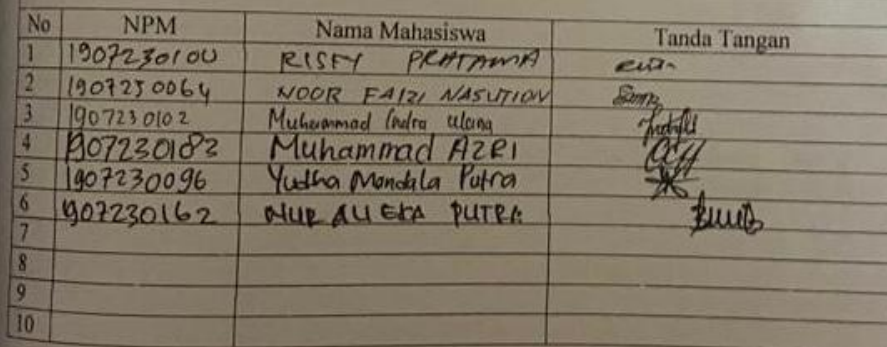 No NPM Nama Mahasiswa Tanda Tangan
1 1907230100 RISFY PRATAMA
2 1907230064 NOOR FAIZI NASUTION
3 1907230102 Muhammad Indra
4 1907230183 Muhammad AZRI
5 1907230096 Yudha Mandala Putra
6 1907230162 NUR ALI EKA PUTRA
7
8
9
10